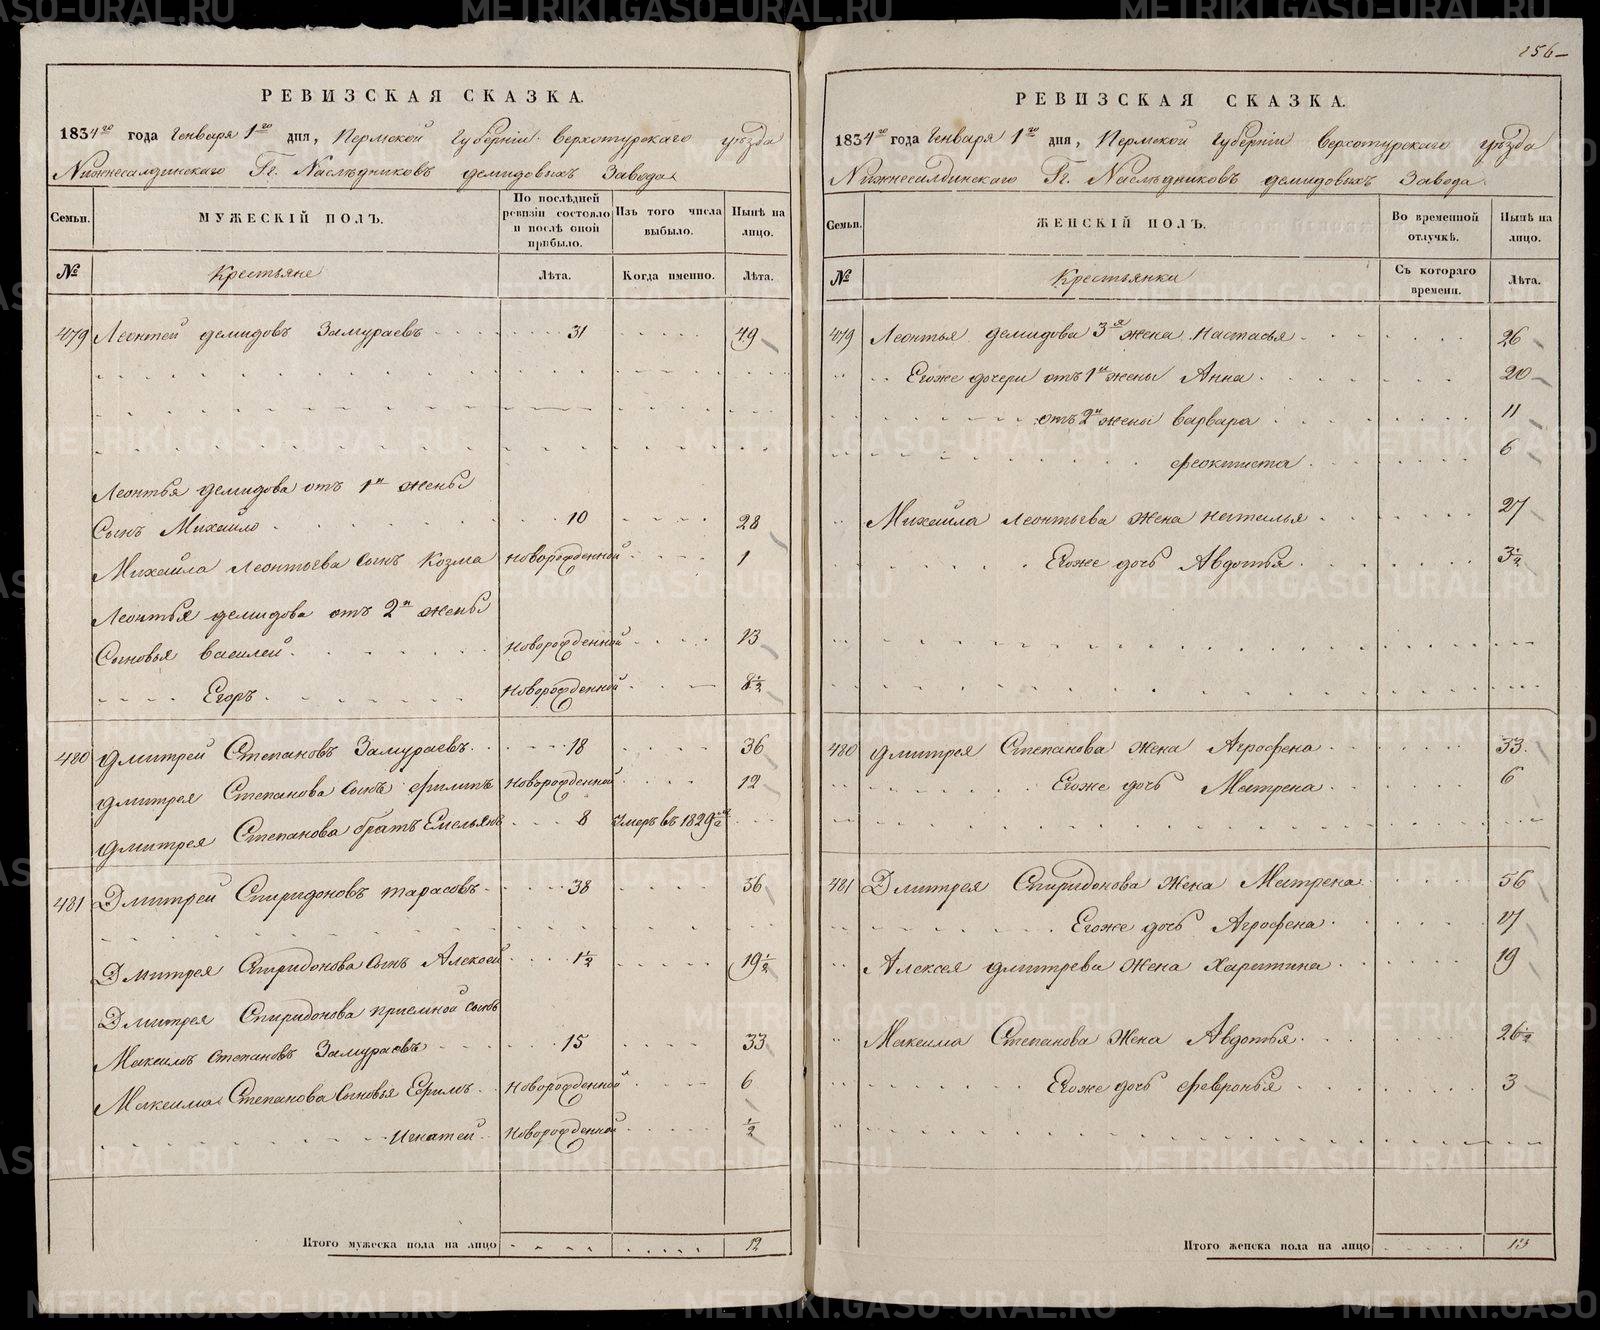 156
РЕВИЗСКАЯ СКАЗКА.
1834го года Генваря 1го дня, Пермской Губерніи Верхотурскаго уѣзда
Нижнесалдинскаго Гг. Наслѣдниковъ Демидовыхъ Завода
Семьи. МУЖЕСКІЙ ПОЛЪ. По послѣдней ревизіи состояло и послѣ оной прибыло. Изъ того числа выбыло. Нынѣ на лицо.
№ Крестьяне Лѣта. Когда именно. Лѣта.
479 Леонтей Демидовъ Замураевъ 31 49
Леонтья Демидова отъ 1й жены
Сынъ Михайло 10 28
Михайла Леонтьева сынъ Козма Новорожденной 1
Леонтья Демидова отъ 2й жены
Сыновья Василей Новорожденной 13
Егоръ Новорожденной 8½
480 Дмитрей Степановъ Замураевъ 18 36
Дмитрея Степанова сынъ Филипъ Новорожденной 12
Дмитрея Степанова братъ Емельянъ 8 умеръ въ 1829
481 Дмитрей Спиридоновъ Тарасовъ 38 56
Дмитрея Спиридонова сынъ Алексей 1½ 19½
Дмитрея Спиридонова приемной сынъ
Максимъ Степановъ Замураевъ 15 33
Максима Степанова сыновья Ефимъ Новорожденной 6
Игнатей Новорожденной ½
Итого мужеска пола на лицо 12
РЕВИЗСКАЯ СКАЗКА.
1834го года Генваря 1го дня, Пермской Губерніи Верхотурскаго уѣзда
Нижнесалдинскаго Гг. Наслѣдниковъ Демидовыхъ Завода
Семьи. ЖЕНСКІЙ ПОЛЪ. Во временной отлучкѣ. Нынѣ на лицо.
№ Крестьянки Съ котораго времени. Лѣта.
479 Леонтья Демидова 3я жена Настасья 26
Егоже дочери отъ 1й жены Анна 20
отъ 2й жены Варвара 11
Феоктиста 6
Михайла Леонтьева жена Наталья 27
Егоже дочь Авдотья 3½
480 Дмитрея Степанова жена Агрофена 33
Егоже дочь Матрена 6
481 Дмитрея Спиридонова жена Матрена 56
Егоже дочь Агрофена 17
Алексея Дмитрева жена Харитина 19
Максима Степанова жена Авдотья 26½
Егоже дочь Февронья 3
Итого женска пола на лицо 13
METRIKI.GASO-URAL.RU